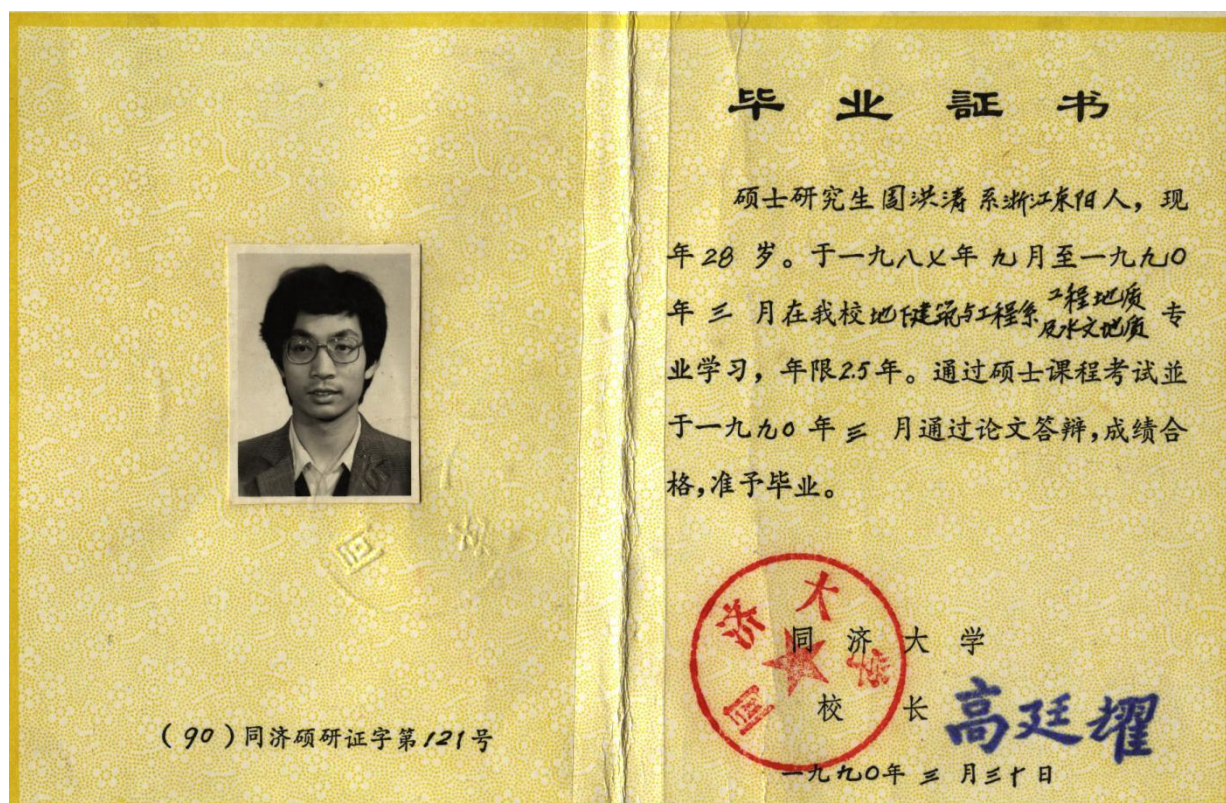 (90)同济硕研证字第121号
毕业証书
硕士研究生周洪涛系浙江东阳人，现
年28岁。于一九八七年九月至一九九〇
年三月在我校地下建筑与工程系工程地质及水文地质专
业学习，年限2.5年。通过硕士课程考试並
于一九九〇年三月通过论文答辩，成绩合
格，准予毕业。
同济大学
同济大学
校长高廷耀
一九九〇年三月三十日